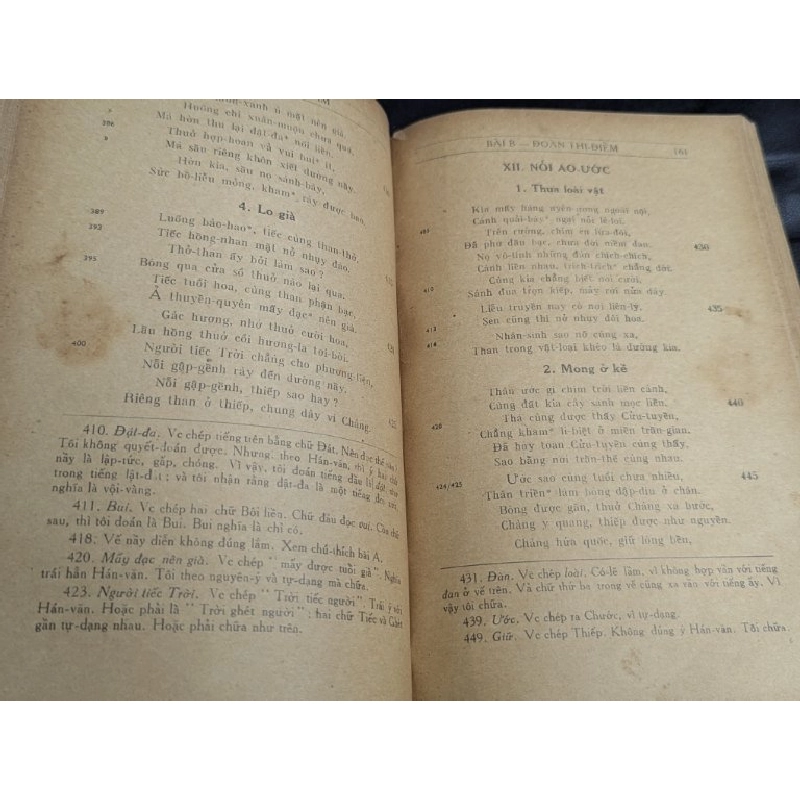 Hướng chi xuân-muộn chưa quả,
396 Má hồn thu lại đặt-đa* nối liền.
Thuở hợp-hoan và vui bui* ít,
Má sầu riêng khôn xiết đường này.
Hờn kia, sầu nọ sánh-bày,
Sức bồ-liễu mỏng, kham* rày được
4. Lo già
389 Luống bão-hao*, tiếc cùng than-thở,
392 Tiếc hồng-nhan mặt nở nhụy đào.
Thở-than ấy bởi làm sao?
395 Bóng qua cửa sổ thuở nào lại qua.
Tiếc tuổi hoa, cùng than phận bạc,
Ả thuyền-quyên mấy đạc* nên già.
Gác hương, nhớ thuở cười hoa,
Lầu hồng thuở cối hương-la tơi-bời.
400 Người tiếc Trời chẳng cho phương-tiện,
Nỗi gập-gềnh rày đến đường này.
Nỗi gập-gềnh, thiếp sao hay?
Riêng than ở thiếp, chung dây vì Chàng. 425
410. Đặt-đa. Vc chép tiếng trên bằng chữ Đất. Nên đọc thế nào?
Tôi không quyết-đoán được. Nhưng, theo Hán-văn, thì ý hai chữ
này là lập-tức, gấp, chóng. Vì vậy, tôi đoán tiếng đầu là đặt, như
trong tiếng lật-đật; và tôi nhận rằng đặt-đa là một tiếng
nghĩa là vội-vàng.
411. Bui. Vc chép hai chữ Bôi liền. Chữ đầu đọc vui. Còn chữ
sau, thì tôi đoán là Bui. Bui nghĩa là chỉ có.
418. Vế này diễn không đúng lắm. Xem chú-thích bài A.
420. Mấy đạc nên già. Vc chép " mấy được tuổi giả " Nghĩa
trái hẳn Hán-văn. Tôi theo nguyên-ý và tự-dạng mà chữa.
423. Người tiếc Trời. Vc chép " Trời tiếc người ". Trái ý với
Hán-văn. Hoặc phải là " Trời ghét người " : hai chữ Tiếc và Ghét
gần tự-dạng nhau. Hoặc phải chữa như trên.
BÀI B — ĐOÀN THỊ-ĐIỂM 161
XII. NỖI AO-ƯỚC
1. Thua loài vật
Kìa mấy hàng uyên-ương ngoài nội,
Cánh quải-bay* ngại nỗi lẻ-loi.
Trên rường, chim én lứa-đôi,
Đã phơ đầu bạc, chưa đời niềm đan. 430
Nọ vô-tình những đôi chích-chích,
Cánh liền nhau, trích-trích* chẳng dời.
Cùng kia chẳng biết nói cười,
410 Sánh đua trọn kiếp, mảy rời nửa đây.
Liễu truyện nay có nơi liên-lý, 435
413 Sen cùng thì nở nhụy đôi hoa.
Nhân-sinh sao nỡ cùng xa,
414 Thân trong vật-loại khéo là dường kia.
2. Mong ở kề
Thân ước gì chim trời liền cánh,
Cùng đất kia cây sánh mọc liền. 440
Thà cùng được thấy Cửu-tuyền,
428 Chẳng kham* li-biệt ở miền trần-gian.
Đã hay toan Cửu-tuyền cùng thấy,
Sao bằng nơi trần-thế cùng nhau.
Ước sao cùng tuổi chưa nhiều, 445
424/425 Thân triền* làm bóng dập-dìu ở chân.
Bóng được gần, thuở Chàng xa bước,
Chàng ỷ quang, thiếp được như nguyền.
Chàng hứa quốc, giữ lòng bền,
431. Đàn. Vc chép loài. Có-lẽ lầm, vì không hợp vần với tiếng
đan ở vế trên. Và chữ thứ ba trong vế cũng xa vần với tiếng ấy. Vì
vậy tôi chữa.
439. Ước. Vc chép ra Chước, vì tự-dạng.
449. Giữ. Vc chép Thiếp. Không đúng ý Hán-văn. Tôi chữa.